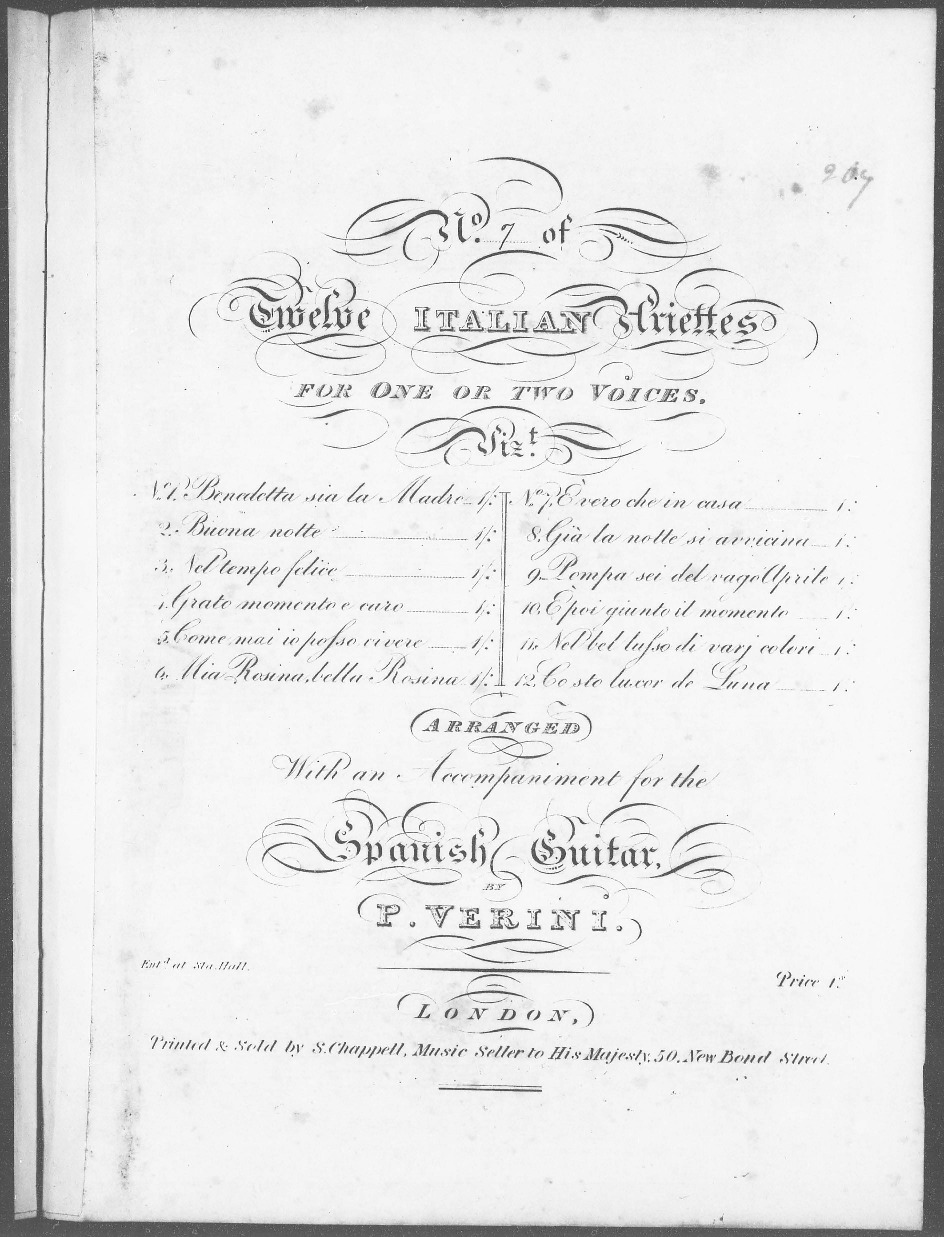 207
No. 7 of
Twelve ITALIAN Ariettes
FOR ONE OR TWO VOICES.
Vizt.
No. 1. Benedetta sia la Madre 1/:
2. Buona notte 1/:
3. Nel tempo felice 1/:
4. Grato momento e caro 1/:
5. Come mai io poſso vivere 1/:
6. Mia Rosina, bella Rosina 1/:
No. 7. È vero che in casa 1:
8. Già la notte si avvicina 1:
9. Pompa sei del vago Aprile 1:
10. È poi giunto il momento 1:
11. Nel bel luſso di varj colori 1:
12. Co sto luxor de Luna 1:
ARRANGED
With an Accompaniment for the
Spanish Guitar,
BY
P. VERINI.
Entd. at Sta. Hall.
Price 1s.
LONDON,
Printed & Sold by S. Chappell, Music Seller to His Majesty, 50, New Bond Street.